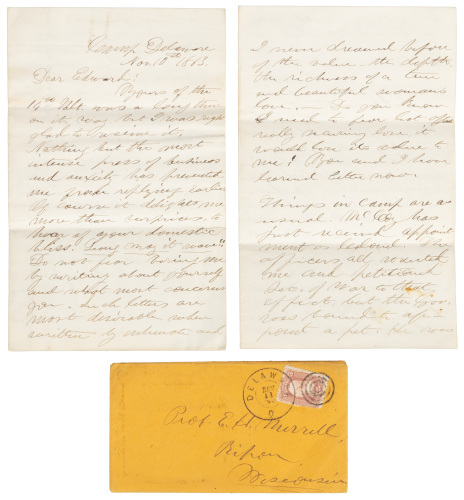 Camp Delaware
Nov 10th 1863
Dear Edward!
Yours of the
14th Ult was a long time
on its way but I was right
glad to receive it.
Nothing but the most
intense press of business
and anxiety has prevented
me from replying earlier
Of course it delights me
more than surprises to
hear of your domestic
bliss. Long may it wave!!
Do not fear me
by writing about yourself
and what most concerns
you. Such letters are
most desirable when
written by intimate and
I never dreamed before
of the value the depth
the richness of a true
and beautiful woman's
love. — Do you know
I used to fear lest after
really love it
would lose its charm to
me? You and I have
learned better now.
Things in Camp are as
usual. McCoy has
just received appoint
ment as Colonel. The
officers all
me and petitioned
Sec. of War to that
effect, but the Gov
to ap
point a pet. He was
DELAW
NOV
11
O
Prof. E. H. Merrell,
Ripon,
Wisconsin